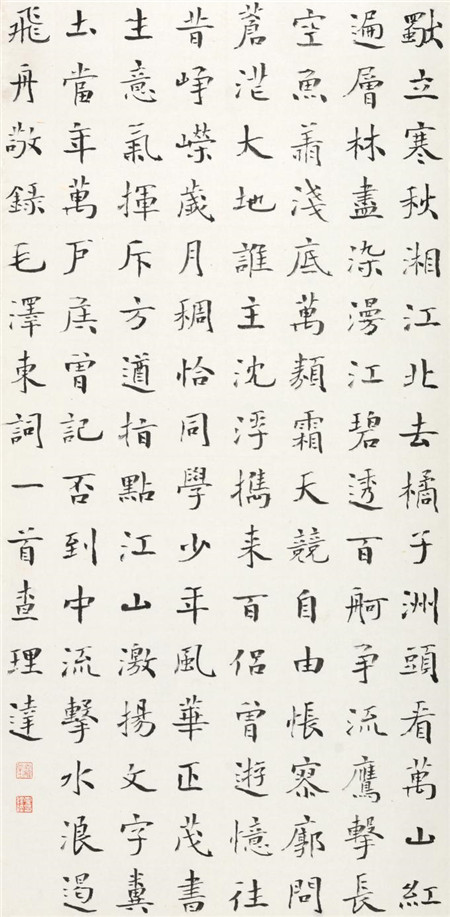 獨立寒秋湘江北去橘子洲頭看萬山紅
遍層林盡染漫江碧透百舸争流鷹擊長
空魚翔淺底萬類霜天競自由悵寥廓問
蒼茫大地誰主沈浮擕来百侣曾遊憶往
昔崢嶸歲月稠恰同學少年風華正茂書
生意氣揮斥方遒指點江山激揚文字糞
土當年萬户侯曾記否到中流擊水浪遏
飛舟敬錄毛澤東詞一首查理達